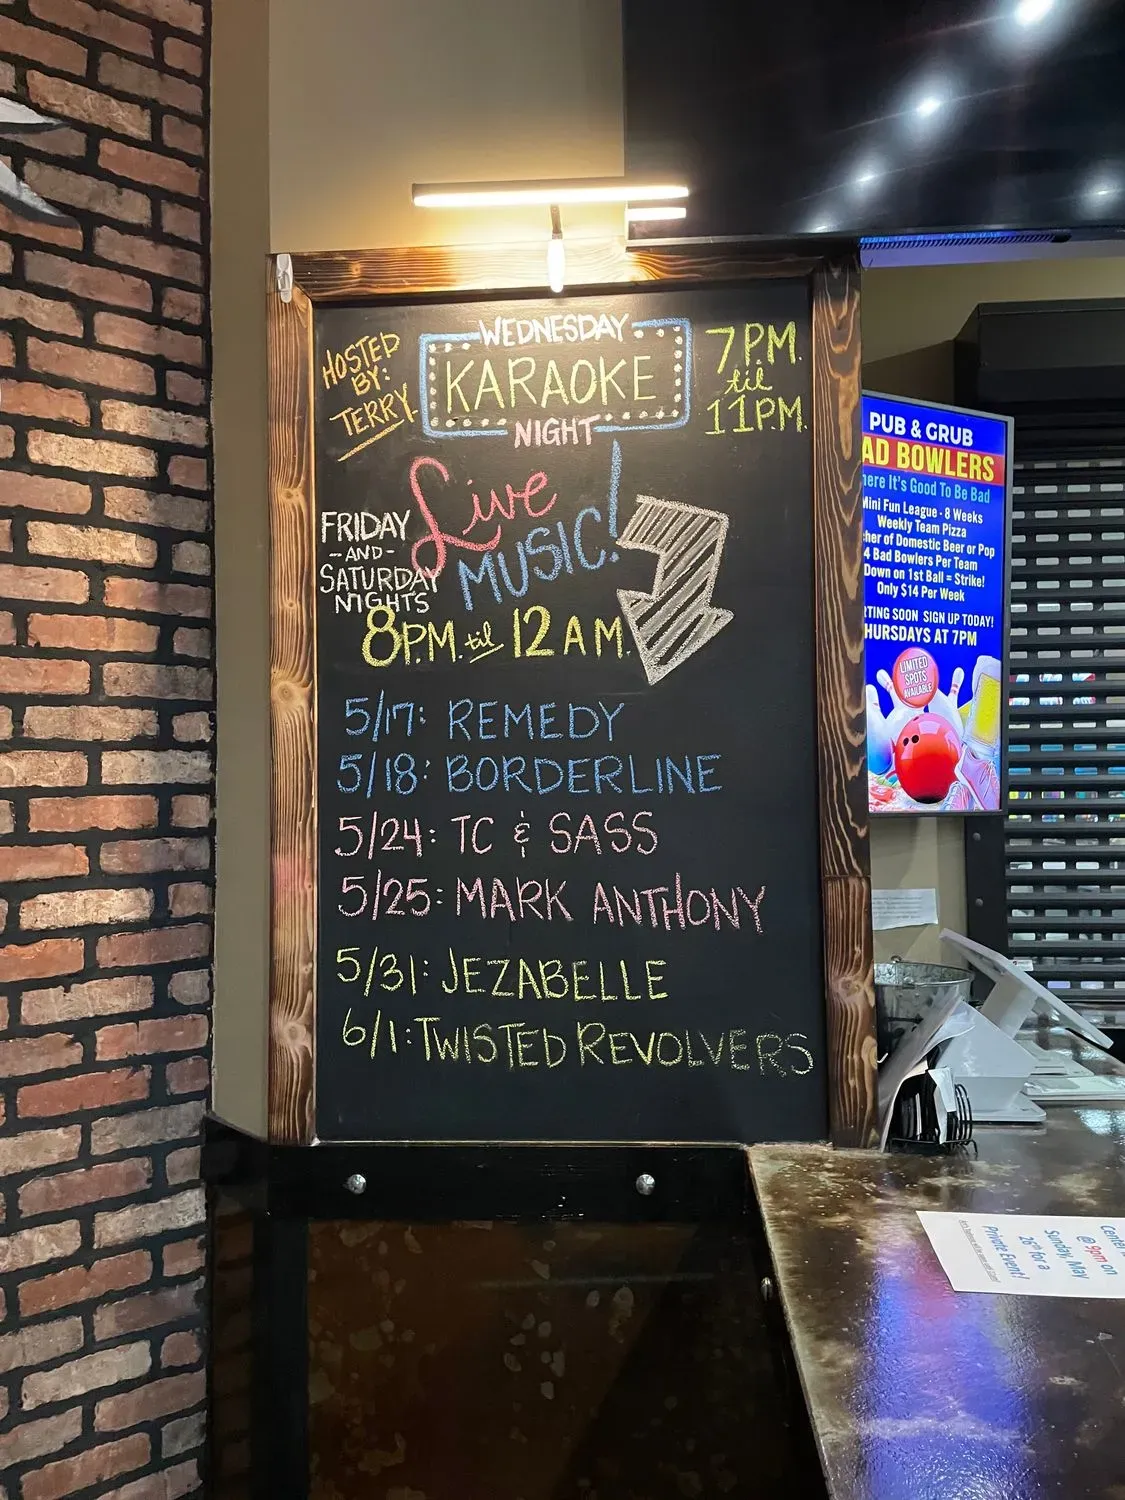 HOSTED
BY:
TERRY
WEDNESDAY
KARAOKE
NIGHT
7P.M.
til
11P.M.
Live
MUSIC!
FRIDAY
-AND-
SATURDAY
NIGHTS
8P.M. til 12AM.
5/17: REMEDY
5/18: BORDERLINE
5/24: TC & SASS
5/25: MARK ANTHONY
5/31: JEZABELLE
6/1: TWISTED REVOLVERS
PUB & GRUB
AD BOWLERS
ere It's Good To Be Bad
Mini Fun League - 8 Weeks
Weekly Team Pizza
cher of Domestic Beer or Pop
4 Bad Bowlers Per Team
Down on 1st Ball = Strike!
Only $14 Per Week
RTING SOON SIGN UP TODAY!
HURSDAYS AT 7PM
LIMITED
SPOTS
AVAILABLE
Center
@ 9pm on
Sunday, May
26th for a
Private Event!